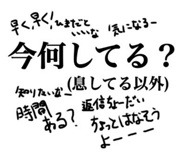 早く早く!ひまだと
いいな 気になるー
今何してる?
(息してる以外)
知りたいなー
時間
ある?
返信ちょーだい
ちょっとはなそう
よーーー